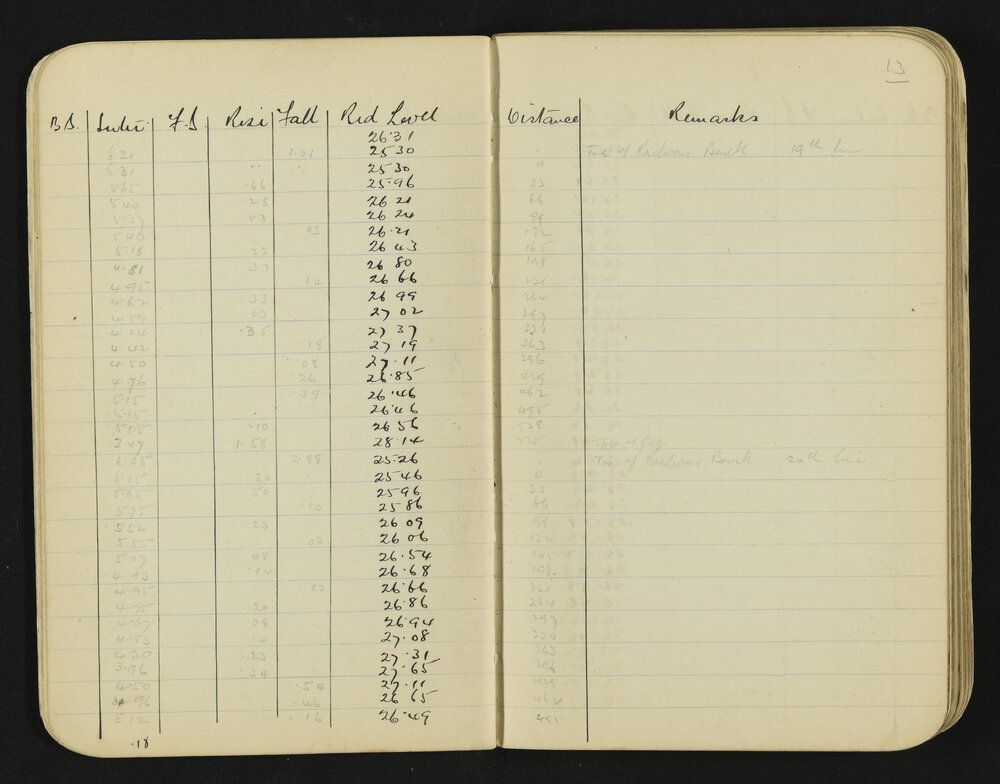 13
B.S. Inter F.S. Rise Fall Red Level Distance Remarks
26.31
6.31 1.01 25 30 Toe of Railway Bank 19th line
6.31 25 30 0
5.65 .66 25.96 33
5.40 .25 26 21 66
5.37 03 26 24 99
5.40 03 26.21 132
5.18 22 26 43 165
4.81 37 26 80 198
4.95 14 26 66 231
4.62 .33 26 99 264
4.59 03 27 02 297
4.24 .35 27 37 330
4.42 18 27 19 363
4.50 08 27.11 396
4.76 .26 26.85 429
5.15 .39 26.46 462
5.15 26.46 495
5.05 .10 26 56 528
3.47 1.58 28.14 Top of Peg
6.35 2.88 25.26 Toe of Railway Bank 20th line
6.15 20 25 46 0
5.65 50 25 96 33
5.75 .10 25 86 66
5.52 .23 26 09 99
5.55 03 26 06 132
5.07 48 26.54 165
4.93 14 26.68 198
4.95 02 26.66 231
4.75 .20 26.86 264
4.67 08 26.94 297
4.53 .14 27.08 330
4.30 .23 27.31 363
3.96 .34 27.65 396
4.50 .54 27.11 429
4.96 .46 26 65 462
5.12 .16 26.49 495
.18